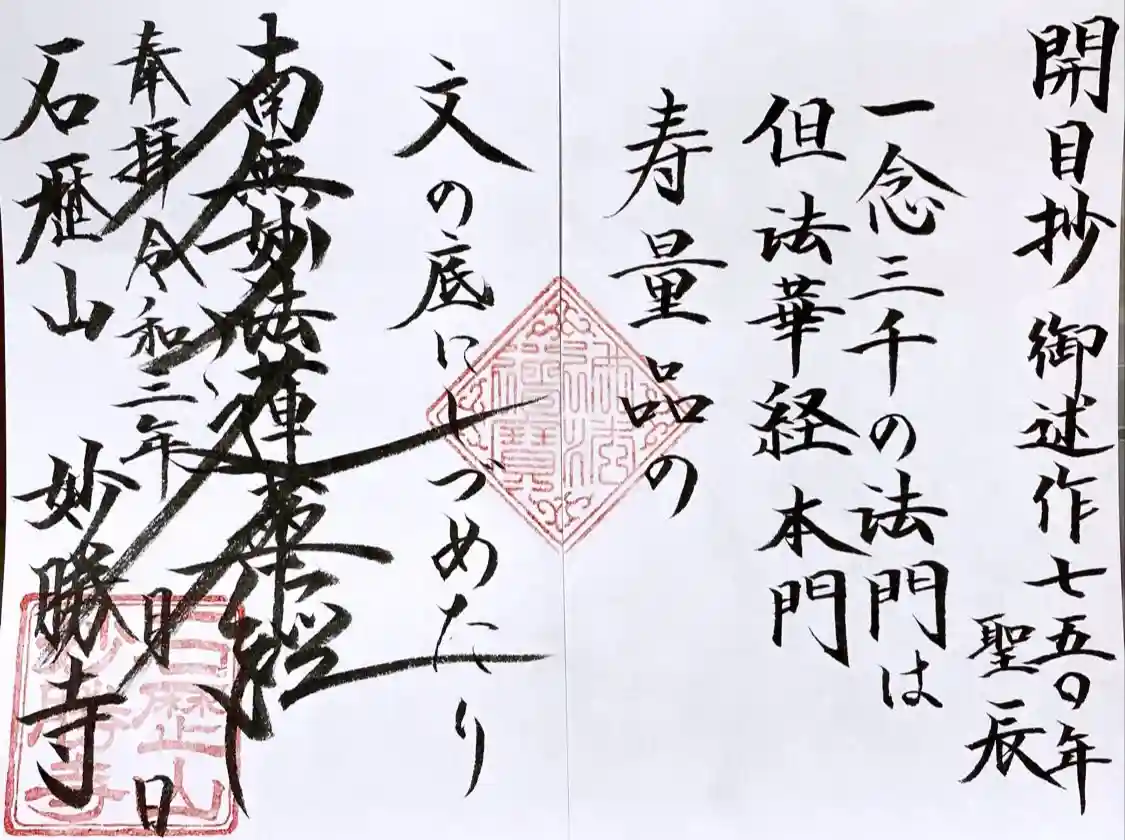 開目抄 御述作七五〇年
聖辰
一念三千の法門は
但法華経本門
寿量品の
文の底にしづめたり
南無妙法蓮華經
奉拝 令和二年 月 日
石歴山 妙勝寺
石歴山
妙勝寺